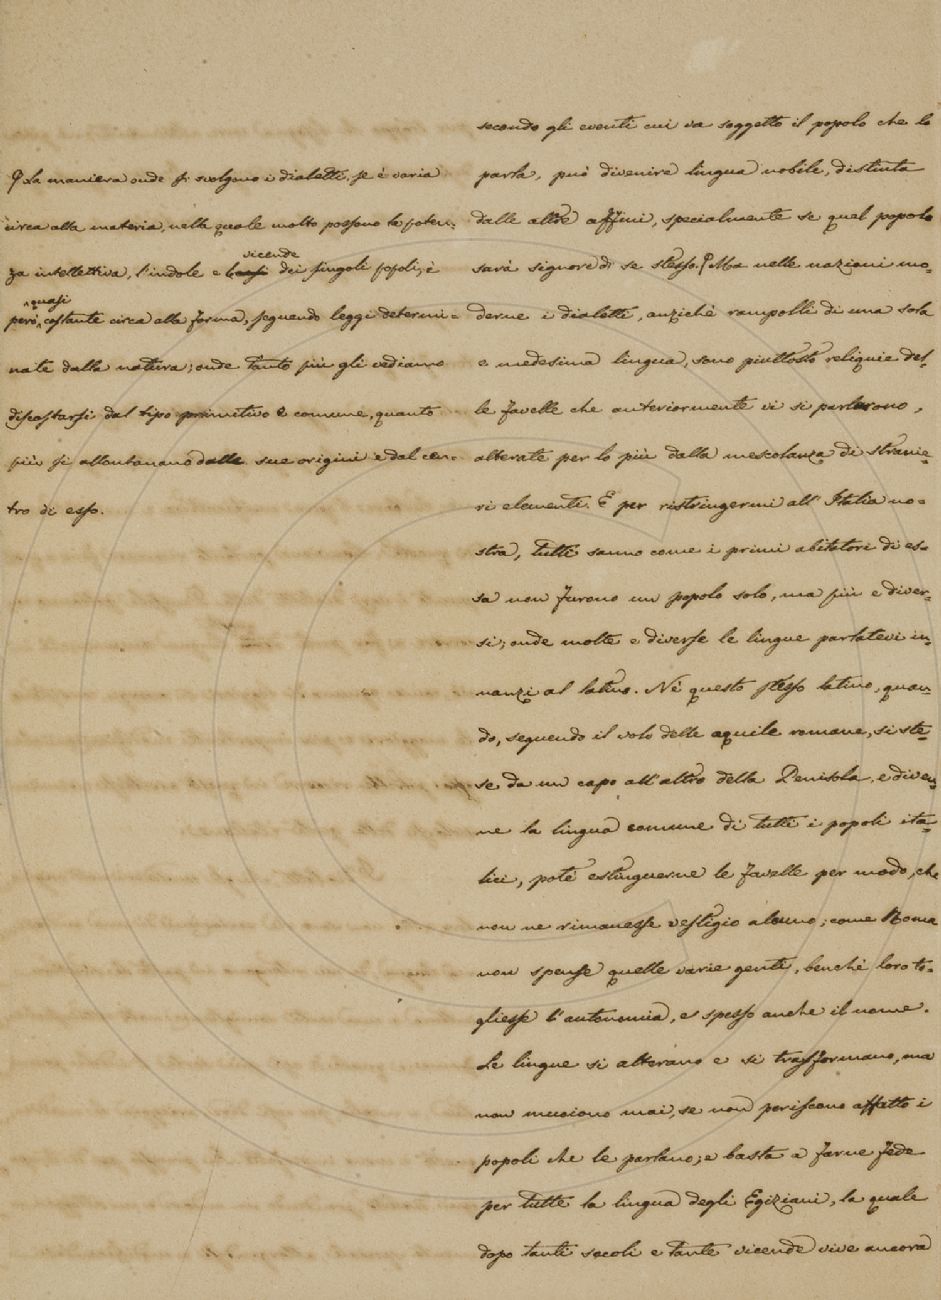 φ La maniera onde si svolgono i dialetti, se è varia
circa alla materia, nella quale molto possono la poten-
za intellettiva, l'indole e i casi vicende dei singoli popoli, è
però, quasi costante circa alla forma, seguendo leggi determi-
nate dalla natura; onde tanto più gli vediamo
discostarsi dal tipo primitivo e comune, quanto
più si allontanano dalle sue origini e dal cen-
tro di esso.
secondo gli eventi cui va soggetto il popolo che lo
parla, può divenire lingua nobile, distinta
dalle altre affini, specialmente se quel popolo
sarà signore di se stesso. φ Ma nelle nazioni mo-
derne i dialetti, anzichè rampolli di una sola
e medesima lingua, sono piuttosto reliquie del-
le favelle che anteriormente vi si parlarono,
alterate per lo più dalla mescolanza di stranie-
ri elementi. E per ristringermi all'Italia no-
stra, tutti sanno come i primi abitatori di es-
sa non furono un popolo solo, ma più e diver-
si; onde molte e diverse le lingue parlatevi in-
nanzi al latino. Nè questo stesso latino, quan-
do, seguendo il volo delle aquile romane, si ste-
se da un capo all'altro della Penisola, e diven-
ne la lingua comune di tutti i popoli ita-
lici, potè estinguerne le favelle per modo, che
non ne rimanesse vestigio alcuno; come Roma
non spense quelle varie genti, benchè loro to-
gliesse l'autonomia, e spesso anche il nome.
Le lingue si alterano e si trasformano, ma
non muoiono mai, se non periscono affatto i
popoli che le parlano; e basta a farne fede
per tutte la lingua degli Egiziani, la quale
dopo tanti secoli e tante vicende vive ancora